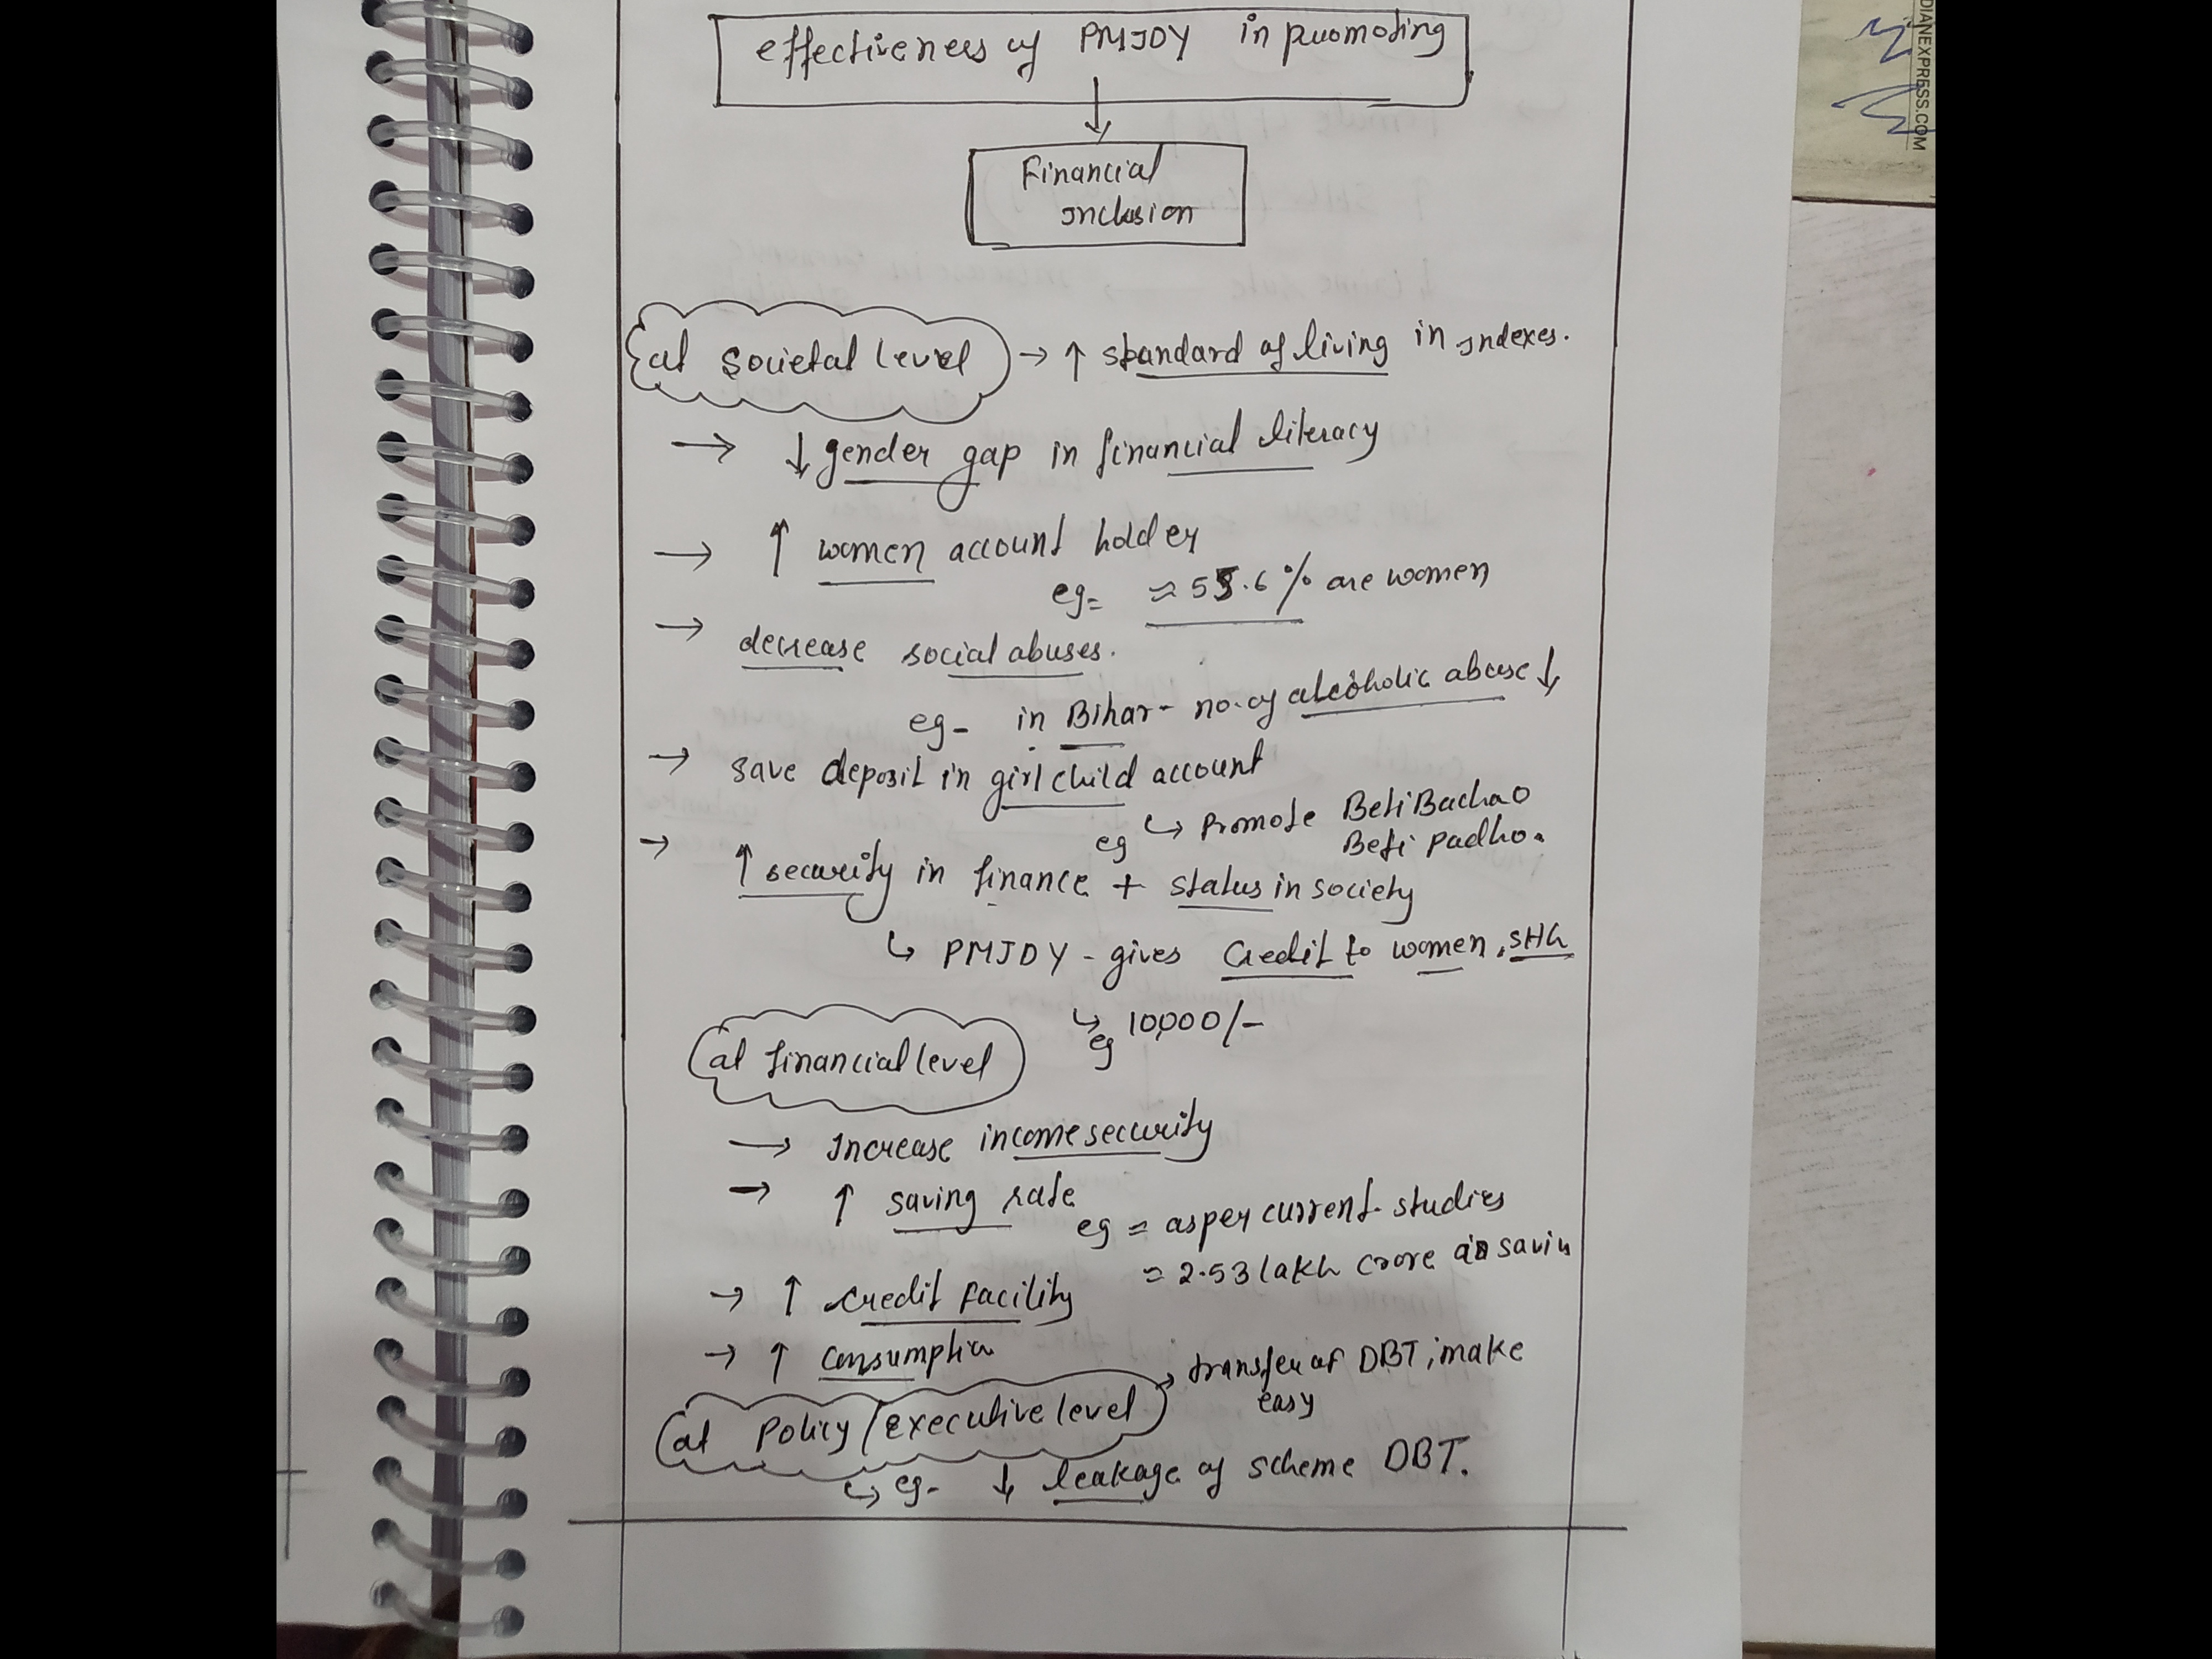 effectiveness of PMJDY in promoting
↓
Financial
Inclusion
at societal level → ↑ standard of living in Indexes.
→ ↓ gender gap in financial literacy
→ ↑ women account holder
eg= ≈ 55.6% are women
→ decrease social abuses.
eg- in Bihar - no. of alcoholic abuse ↓
→ save deposit in girl child account
eg ↳ Promote Beti Bachao
Beti padho.
→ ↑ security in finance + status in society
↳ PMJDY - gives Credit to women, SHG
↳ eg 10,000/-
at financial level
→ Increase income security
→ ↑ saving rate
eg = as per current studies
≈ 2.53 lakh crore as savin
→ ↑ credit facility
→ ↑ Consumption
at Policy/executive level → transfer of DBT, make
easy
↳ eg- ↓ leakage of scheme DBT.
DIANEXPRESS.COM